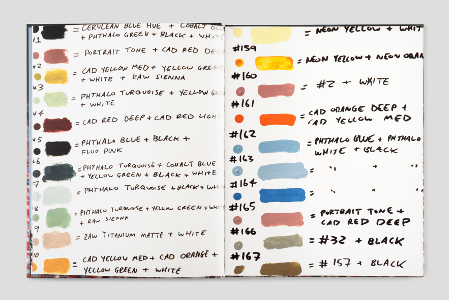 = CERULEAN BLUE HUE + COBALT BL
+ PHTHALO GREEN + BLACK + WHITE
= PORTRAIT TONE + CAD RED DEEP
= CAD YELLOW MED + YELLOW GREEN
+ WHITE + RAW SIENNA
= PHTHALO TURQUOISE + YELLOW GR
+ WHITE
= CAD RED DEEP + CAD RED LIGHT
= PHTHALO BLUE + BLACK +
FLUO PINK
= PHTHALO TURQUOISE + COBALT BLUE
+ YELLOW GREEN + BLACK + WHITE
= PHTHALO TURQUOISE + BLACK + WHITE
= PHTHALO TURQUOISE + YELLOW GREEN + WHITE
+ RAW SIENNA
= RAW TITANIUM MATTE + WHITE
= CAD YELLOW MED + CAD ORANGE +
YELLOW GREEN + WHITE
= NEON YELLOW + WHIT
#159
= NEON YELLOW + NEON ORAN
#160
= #2 + WHITE
#161
= CAD ORANGE DEEP +
CAD YELLOW MED
#162
= PHTHALO BLUE + PHTHALO
WHITE + BLACK
#163
= " " "
#164
#165
= PORTRAIT TONE +
CAD RED DEEP
#166
= #32 + BLACK
#167
= #157 + BLACK